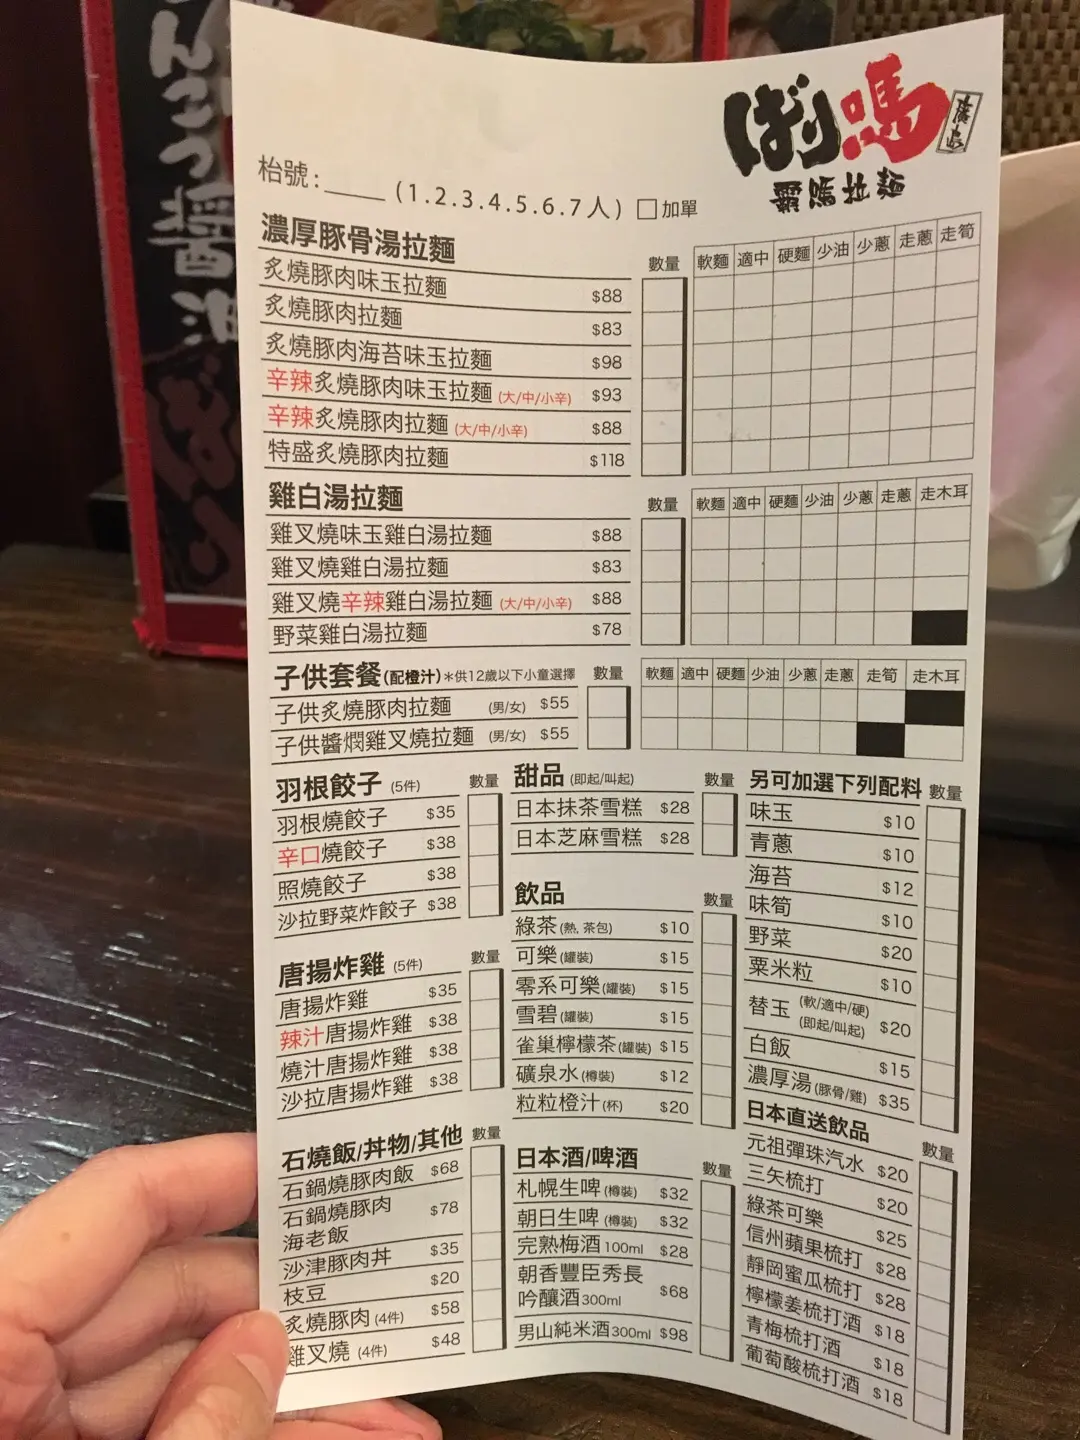 んこつ醤油
ばり嗎
廣島
霸嗎拉麵
枱號:____ (1.2.3.4.5.6.7人) □加單
濃厚豚骨湯拉麵 數量 軟麵 適中 硬麵 少油 少蔥 走蔥 走筍
炙燒豚肉味玉拉麵 $88
炙燒豚肉拉麵 $83
炙燒豚肉海苔味玉拉麵 $98
辛辣炙燒豚肉味玉拉麵 (大/中/小辛) $93
辛辣炙燒豚肉拉麵 (大/中/小辛) $88
特盛炙燒豚肉拉麵 $118
雞白湯拉麵 數量 軟麵 適中 硬麵 少油 少蔥 走蔥 走木耳
雞叉燒味玉雞白湯拉麵 $88
雞叉燒雞白湯拉麵 $83
雞叉燒辛辣雞白湯拉麵 (大/中/小辛) $88
野菜雞白湯拉麵 $78
子供套餐(配橙汁)*供12歲以下小童選擇 數量 軟麵 適中 硬麵 少油 少蔥 走蔥 走筍 走木耳
子供炙燒豚肉拉麵 (男/女) $55
子供醬燜雞叉燒拉麵 (男/女) $55
羽根餃子 (5件) 數量
羽根燒餃子 $35
辛口燒餃子 $38
照燒餃子 $38
沙拉野菜炸餃子 $38
唐揚炸雞 (5件) 數量
唐揚炸雞 $35
辣汁唐揚炸雞 $38
燒汁唐揚炸雞 $38
沙拉唐揚炸雞 $38
石燒飯/丼物/其他 數量
石鍋燒豚肉飯 $68
石鍋燒豚肉
海老飯 $78
沙津豚肉丼 $35
枝豆 $20
炙燒豚肉 (4件) $58
雞叉燒 (4件) $48
甜品 (即起/叫起) 數量
日本抹茶雪糕 $28
日本芝麻雪糕 $28
飲品 數量
綠茶(熱, 茶包) $10
可樂(罐裝) $15
零系可樂(罐裝) $15
雪碧(罐裝) $15
雀巢檸檬茶(罐裝) $15
礦泉水(樽裝) $12
粒粒橙汁(杯) $20
日本酒/啤酒 數量
札幌生啤(樽裝) $32
朝日生啤(樽裝) $32
完熟梅酒100ml $28
朝香豐臣秀長
吟釀酒300ml $68
男山純米酒300ml $98
另可加選下列配料 數量
味玉 $10
青蔥 $10
海苔 $12
味筍 $10
野菜 $20
粟米粒 $10
替玉 (軟/適中/硬)
(即起/叫起) $20
白飯 $15
濃厚湯(豚骨/雞) $35
日本直送飲品 數量
元祖彈珠汽水 $20
三矢梳打 $20
綠茶可樂 $25
信州蘋果梳打 $28
靜岡蜜瓜梳打 $28
檸檬姜梳打酒 $18
青梅梳打酒 $18
葡萄酸梳打酒 $18